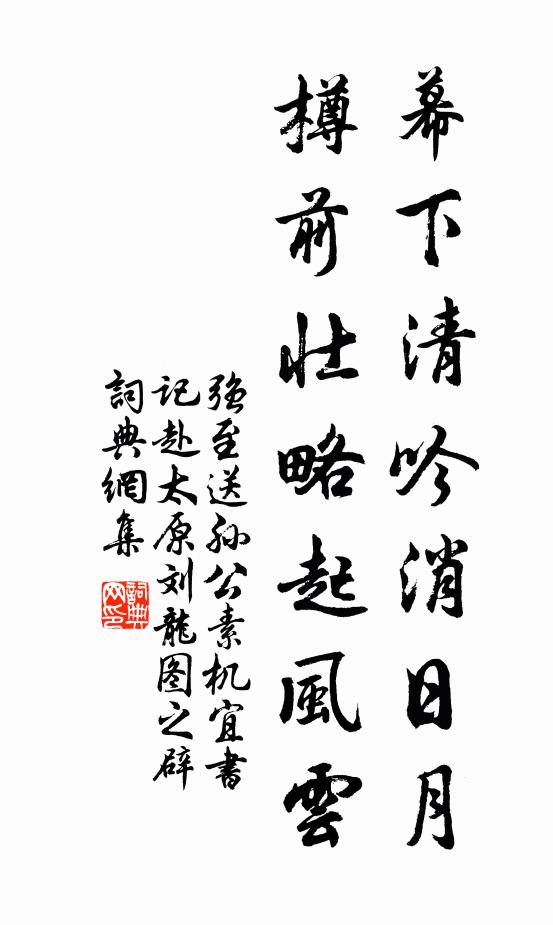 幕下清吟消日月
樽前壯略起風雲
强至送孙公素机宜書
记赴太原刘龍图之辟
詞典網集
詞典
网印